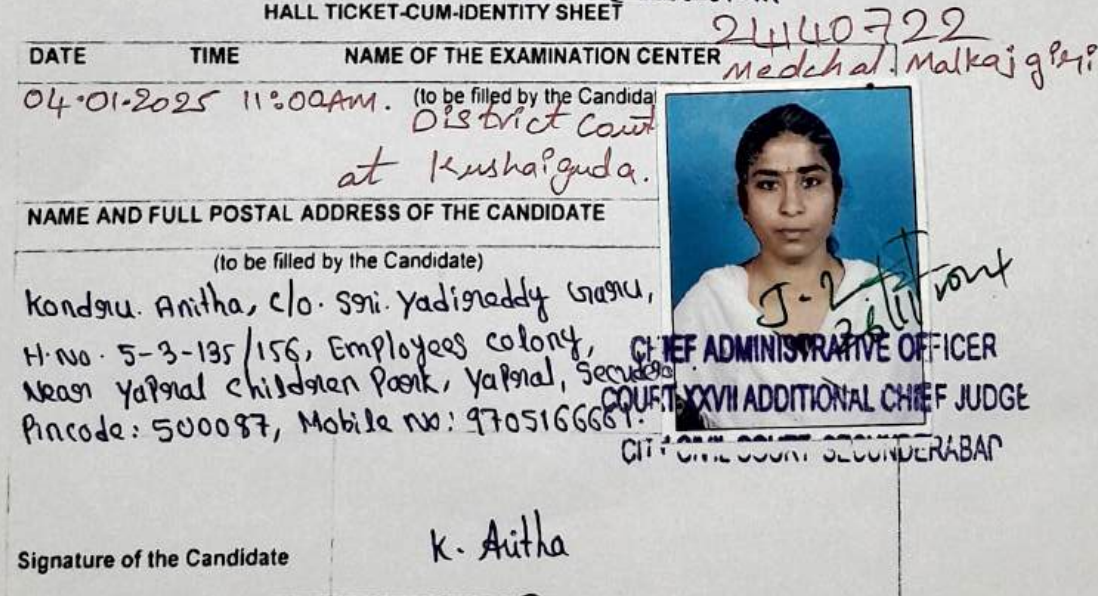 HALL TICKET-CUM-IDENTITY SHEET
24140722
DATE TIME NAME OF THE EXAMINATION CENTER Medchal. Malkajgiri
04.01.2025 11:00AM. (to be filled by the Candida
District Court
at Kushaiguda.
NAME AND FULL POSTAL ADDRESS OF THE CANDIDATE
(to be filled by the Candidate)
Kondru. Anitha, C/o. Sri. Yadireddy Garu,
H.No. 5-3-135/156, Employees colony,
Near Yapral Children Park, Yapral,
Pincode: 500087, Mobile No:
CHIEF ADMINISTRATIVE OFFICER
COURT XXVII ADDITIONAL CHIEF JUDGE
CITY CIVIL COURT SECUNDERABAD
Signature of the Candidate K. Anitha